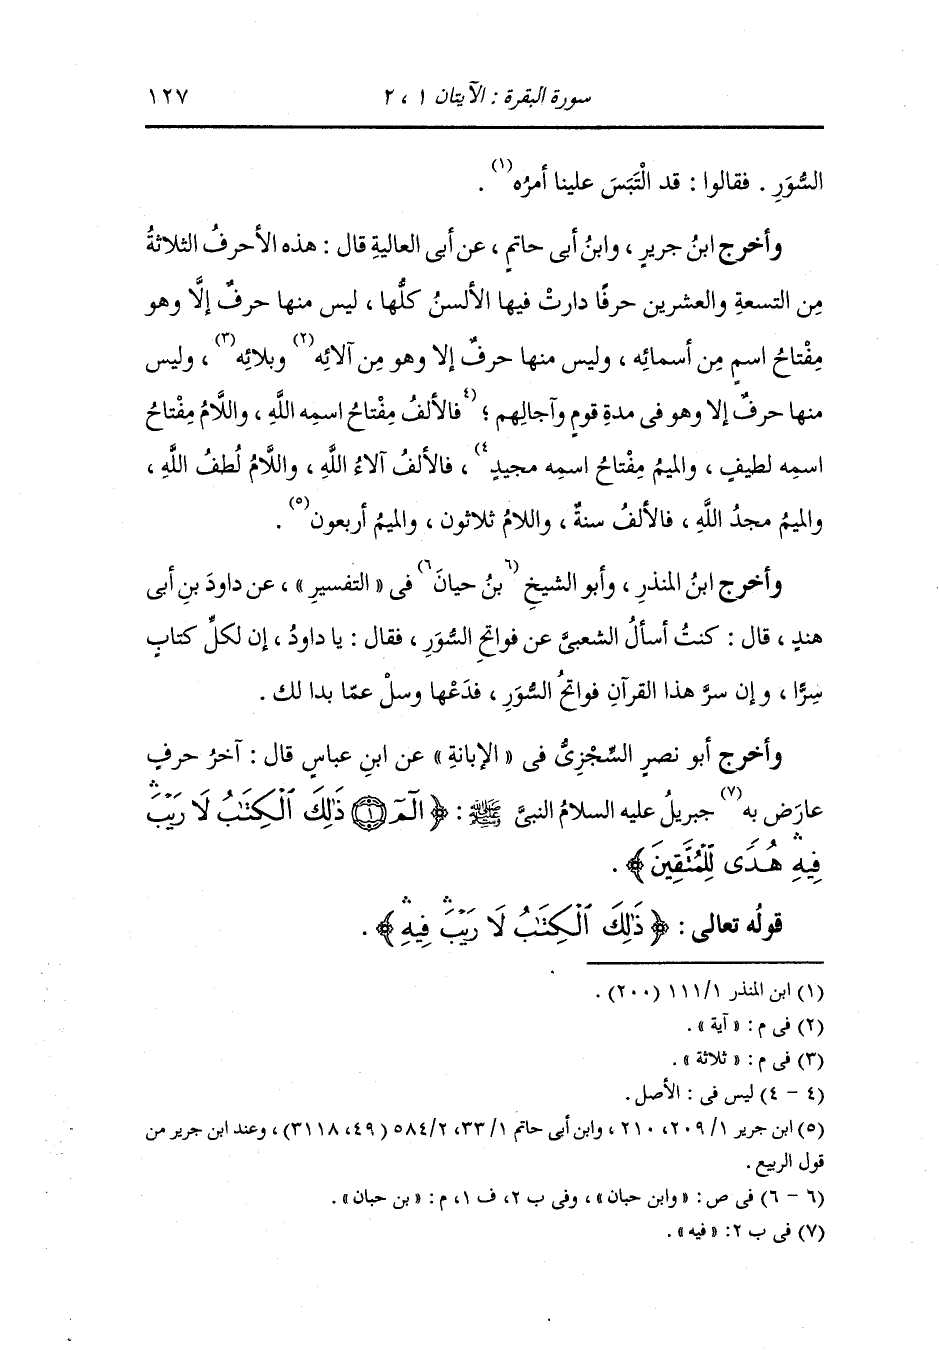 سورة البقرة : الآيتان ١ ، ٢ ١٢٧
السُّوَرِ . فقالوا : قد الْتَبَسَ علينا أمرُه(١) .
وأخرج ابنُ جريرٍ ، وابنُ أبى حاتمٍ ، عن أبى العاليةِ قال : هذه الأحرفُ الثلاثةُ
مِن التسعةِ والعشرين حرفًا دارتْ فيها الألسنُ كلُّها ، ليس منها حرفٌ إلَّا وهو
مِفْتاحُ اسمٍ مِن أسمائِه ، وليس منها حرفٌ إلا وهو مِن آلائِه(٢) وبلائِه(٣) ، وليس
منها حرفٌ إلا وهو فى مدةِ قومٍ وآجالِهم ؛ (٤)فالألفُ مِفْتاحُ اسمِه اللَّهِ ، واللَّامُ مِفْتاحُ
اسمِه لطيفٍ ، والميمُ مِفْتاحُ اسمِه مجيدٍ(٤) ، فالألفُ آلاءُ اللَّهِ ، واللَّامُ لُطفُ اللَّهِ ،
والميمُ مجدُ اللَّهِ ، فالألفُ سنةٌ ، واللامُ ثلاثون ، والميمُ أربعون(٥) .
وأخرج ابنُ المنذرِ ، وأبو الشيخِ (٦)بنُ حيانَ(٦) فى « التفسيرِ » ، عن داودَ بنِ أبى
هندٍ ، قال : كنتُ أسألُ الشعبىَّ عن فواتحِ السُّوَرِ ، فقال : يا داودُ ، إن لكلِّ كتابٍ
سِرًّا ، وإن سرَّ هذا القرآنِ فواتحُ السُّوَرِ ، فدَعْها وسلْ عمّا بدا لك .
وأخرج أبو نصرٍ السِّجْزِىُّ فى « الإبانةِ » عن ابنِ عباسٍ قال : آخرُ حرفٍ
عارَض به(٧) جبريلُ عليه السلامُ النبىَّ ﷺ : ﴿الٓمٓ ۝١ ذَٰلِكَ ٱلْكِتَٰبُ لَا رَيْبَۛ
فِيهِۛ هُدًى لِّلْمُتَّقِينَ﴾ .
قولُه تعالى : ﴿ذَٰلِكَ ٱلْكِتَٰبُ لَا رَيْبَۛ فِيهِۛ﴾ .
(١) ابن المنذر ١/ ١١١ (٢٠٠) .
(٢) فى م : « آية » .
(٣) فى م : « ثلاثة » .
(٤ - ٤) ليس فى : الأصل .
(٥) ابن جرير ١/ ٢٠٩، ٢١٠ ، وابن أبى حاتم ١/ ٣٣، ٥٨٤/٢ (٤٩، ٣١١٨) ، وعند ابن جرير من
قول الربيع .
(٦ - ٦) فى ص : « وابن حبان » ، وفى ب ٢، ف ١، م : « بن حبان » .
(٧) فى ب ٢: « فيه » .